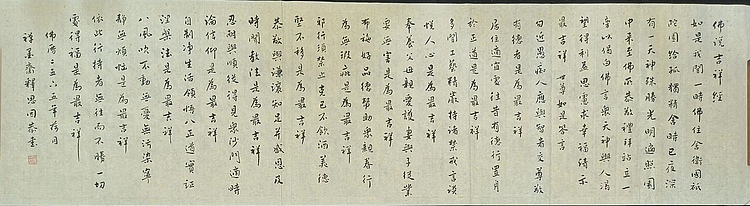 佛說吉祥經
如是我聞一時佛住舍衛國祇
陀園給孤獨精舍時已夜深
有一天神殊勝光明遍照園
中來至佛所恭敬禮拜站立一
旁以偈白佛言眾天神與人渴
望得利益思慮求幸福請示
最吉祥 世尊如是答言
勿近愚痴人應與智者交尊敬
有德者是為最吉祥
居住適宜處往昔有德行置身
於正道是為最吉祥
多聞工藝精嚴持諸禁戒言談
悅人心是為最吉祥
奉養父母親愛護妻與子從業
要無害是為最吉祥
布施好品德幫助眾親眷行
為無瑕疵是為最吉祥
邪行須禁止克己不飲酒美德
堅不移是為最吉祥
恭敬與謙讓知足並感恩及
時聞教法是為最吉祥
忍耐與順從得見眾沙門適時
論信仰是為最吉祥
自制淨生活領悟八正道實證
涅槃法是為最吉祥
八風吹不動無憂無污染寧
靜無煩惱是為最吉祥
依此行持者無往而不勝一切
處得福是為最吉祥
佛曆二五六五年荷月
祥墨齋釋思同恭書